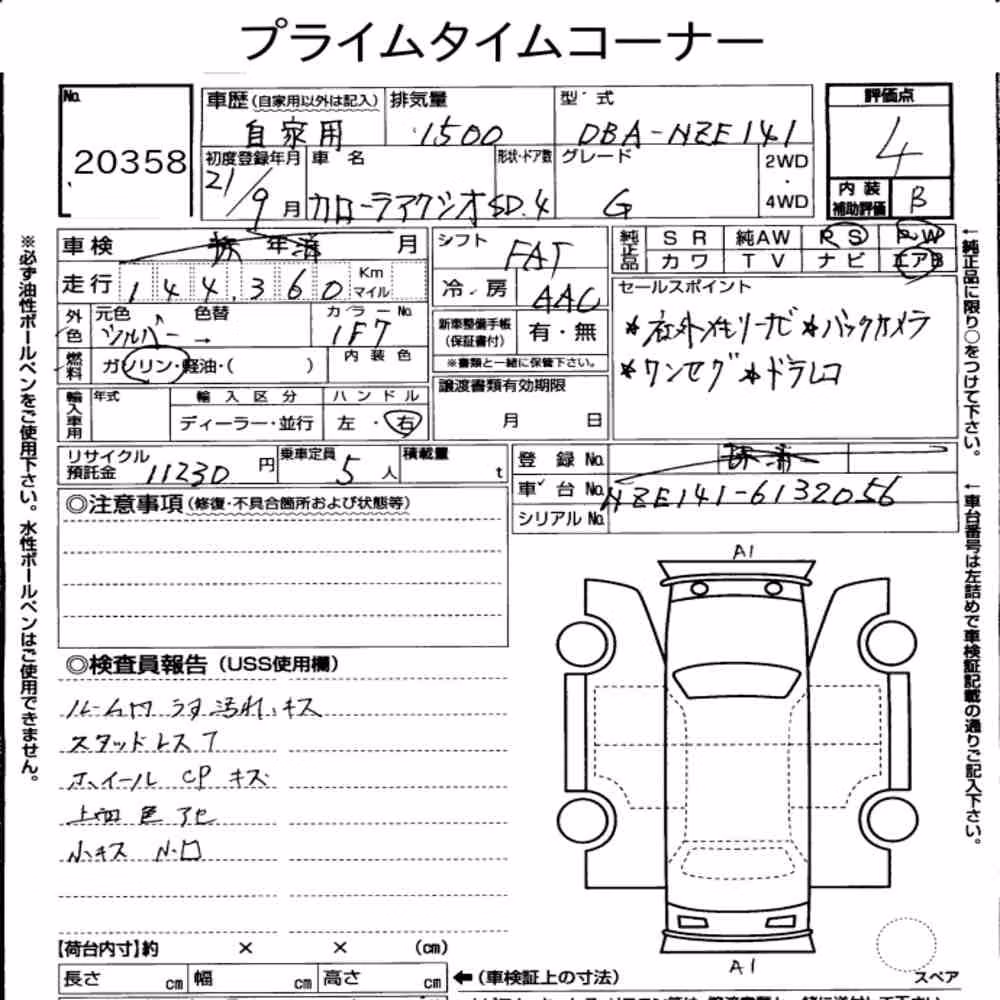 プライムタイムコーナー
No. 20358
車歴(自家用以外は記入) 自家用
排気量 1500
型式 DBA-NZE141
評価点 4
初度登録年月 21/9月
車名 カローラアクシオ
形状・ドア数 SD.4
グレード G
2WD・4WD
内装補助評価 B
車検 年 月
走行 144,360 Km マイル
シフト FAT
冷房 AAC
純正品 SR 純AW PS PW
カワ TV ナビ エアB
外色 元色 シルバー → 色替
カラーNo. 1F7
燃料 ガソリン・軽油・( )
内装色
新車整備手帳(保証書付) 有・無
※書類と一緒に保管下さい。
セールスポイント
*社外メモリーナビ*バックカメラ
*ワンセグ*ドラレコ
輸入車用 年式 輸入区分 ディーラー・並行
ハンドル 左・右
譲渡書類有効期限 月 日
リサイクル預託金 11230円
乗車定員 5人
積載量 t
登録No.
車台No. NZE141-6132056
シリアルNo.
◎注意事項(修復・不具合箇所および状態等)
◎検査員報告(USS使用欄)
ルーム内 うす汚れ、キズ
スタッドレスT
ホイール CP キズ
上面 色アセ
小キズ 小凹
A1
A1
スペア
【荷台内寸】約 × × (cm)
長さ cm 幅 cm 高さ cm
←(車検証上の寸法)
※必ず油性ボールペンをご使用下さい。水性ボールペンはご使用できません。
←純正品に限り○をつけて下さい。
←車台番号は左詰めで車検証記載の通りご記入下さい。